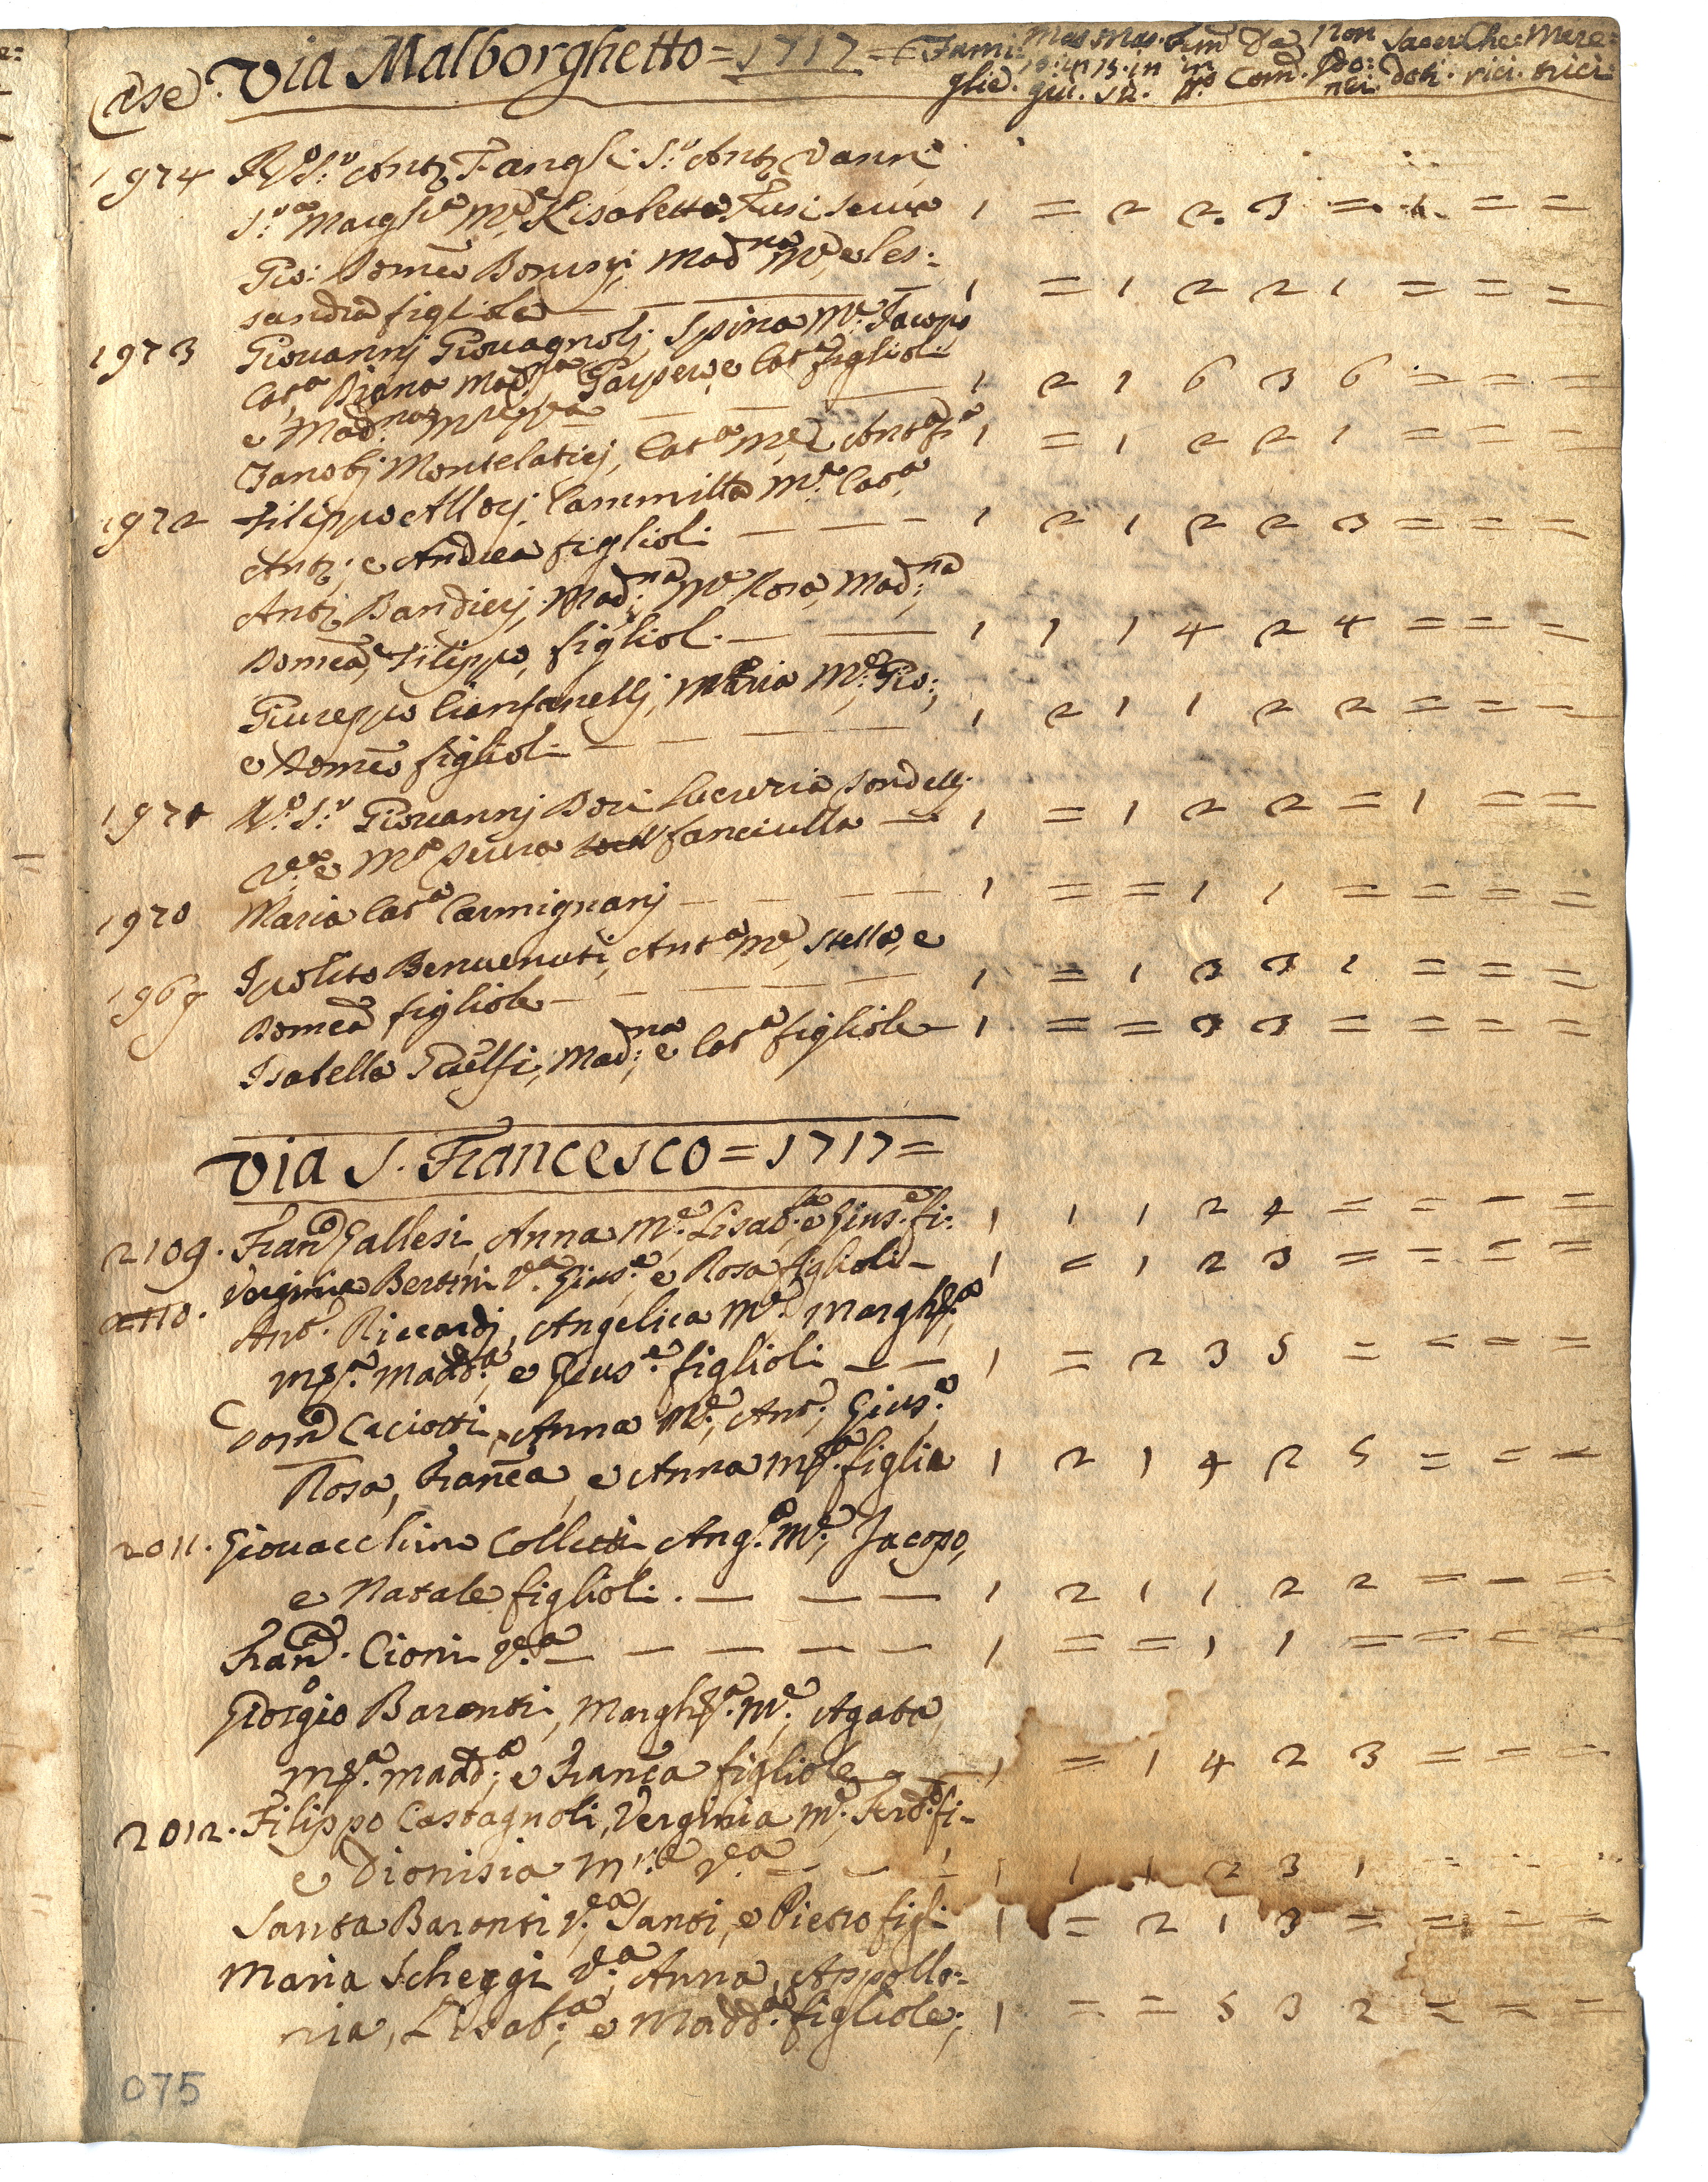 Case Via Malborghetto = 1717 = Fami: Mas Mas. fem Da Non Sacer Che: Mere:
glie. giu. su. Com. nei. doti. rici. trici:
1974 R.do S.r Ant.o Fangli S.r Ant.o Vanni
S.ra Margh.a M.e Lisabetta Fusi serva 1 = 2 2. 3 = 1. = =
Gio: Dom.co Borusgi, Mad.na M.e e Les:
sandra figliole — 1 = 1 2 2 1 = = =
1973 Giovannj Giovagnolj, Spina M.e Jacopo
Cat.a Diana Mad.na Gaspero, e Cat.a figlioli
e Mad.na — — 1 2 1 6 3 6 = = =
Zanobj Montelaticj, Cat.a M.e Ant.a f.a 1 = 1 2 2 1 = = =
1972 Filippo Allorj, Cammilla M.e Cat.a
Ant.o, e Andrea figlioli — — - 1 2 1 2 2 3 = = =
Ant.o Bandierj, Mad:na M.e Rosa, Mad:na
Domca, Filippo, figliol. — — 1 1 1 4 2 4 = = =
Giuseppe Cianfanellj, Maria M.e Gio:,
e Domco figlioli — — — — 1 2 1 1 2 2 = = =
1971 R.do S.r Giovannj Dori Lucrezia Sondellj
V.a e M.a serva fanciulla — 1 = 1 2 2 = 1 = =
1970 Maria Cat.a Carmignanj — — — — 1 = = 1 1 = = = =
1969 Ipolito Benvenuti, Ant.a M.e, Stella, e
Domca figliole — — — — — 1 = 1 3 3 1 = = =
Isabella Guelfi, Mad:na e Cat.a figliole — 1 = = 3 3 = = = =
Via S. Francesco = 1717 =
2109. Fran.co Gallesi, Anna M.e, Lisab.a e Gius.e fi: 1 1 1 2 4 = = = =
2110. Verginia Bertini V.a Gius.e, e Rosa figlioli — 1 = 1 2 3 = = = =
Ant.o Riccardj, Angelica M.e, Margh.ta
M.a Madd.a, e Gius.e figlioli — — 1 = 2 3 5 = = = =
Dom.co Caciotti, Anna M.e, Ant.o, Gius.e
Rosa, Franca, e Anna M.a figlia 1 2 1 4 2 5 = = =
2011. Giovacchino Colletti Ang.a M.e, Jacopo,
e Natale figlioli. — — — 1 2 1 1 2 2 = = =
Fran.ca Cioni V.a — — — — — 1 = = 1 1 = = = =
Giorgio Baronti, Margh.ta M.e, Agata,
M.a Madd.a, e Franca figliole — 1 = 1 4 2 3 = = =
2012. Filippo Castagnoli, Verginia M.e, Ferd.o fi-
e Dionisia M.e V.a — — 1 1 1 2 3 1 = = =
Santa Baronti V.a, Santi, e Pietro figli 1 = 2 1 3 = = = =
Maria Scheggi V.a, Anna, Appollo:
nia, Lisab.a, e Madd.a figliole; 1 = = 5 3 2 = = =
075